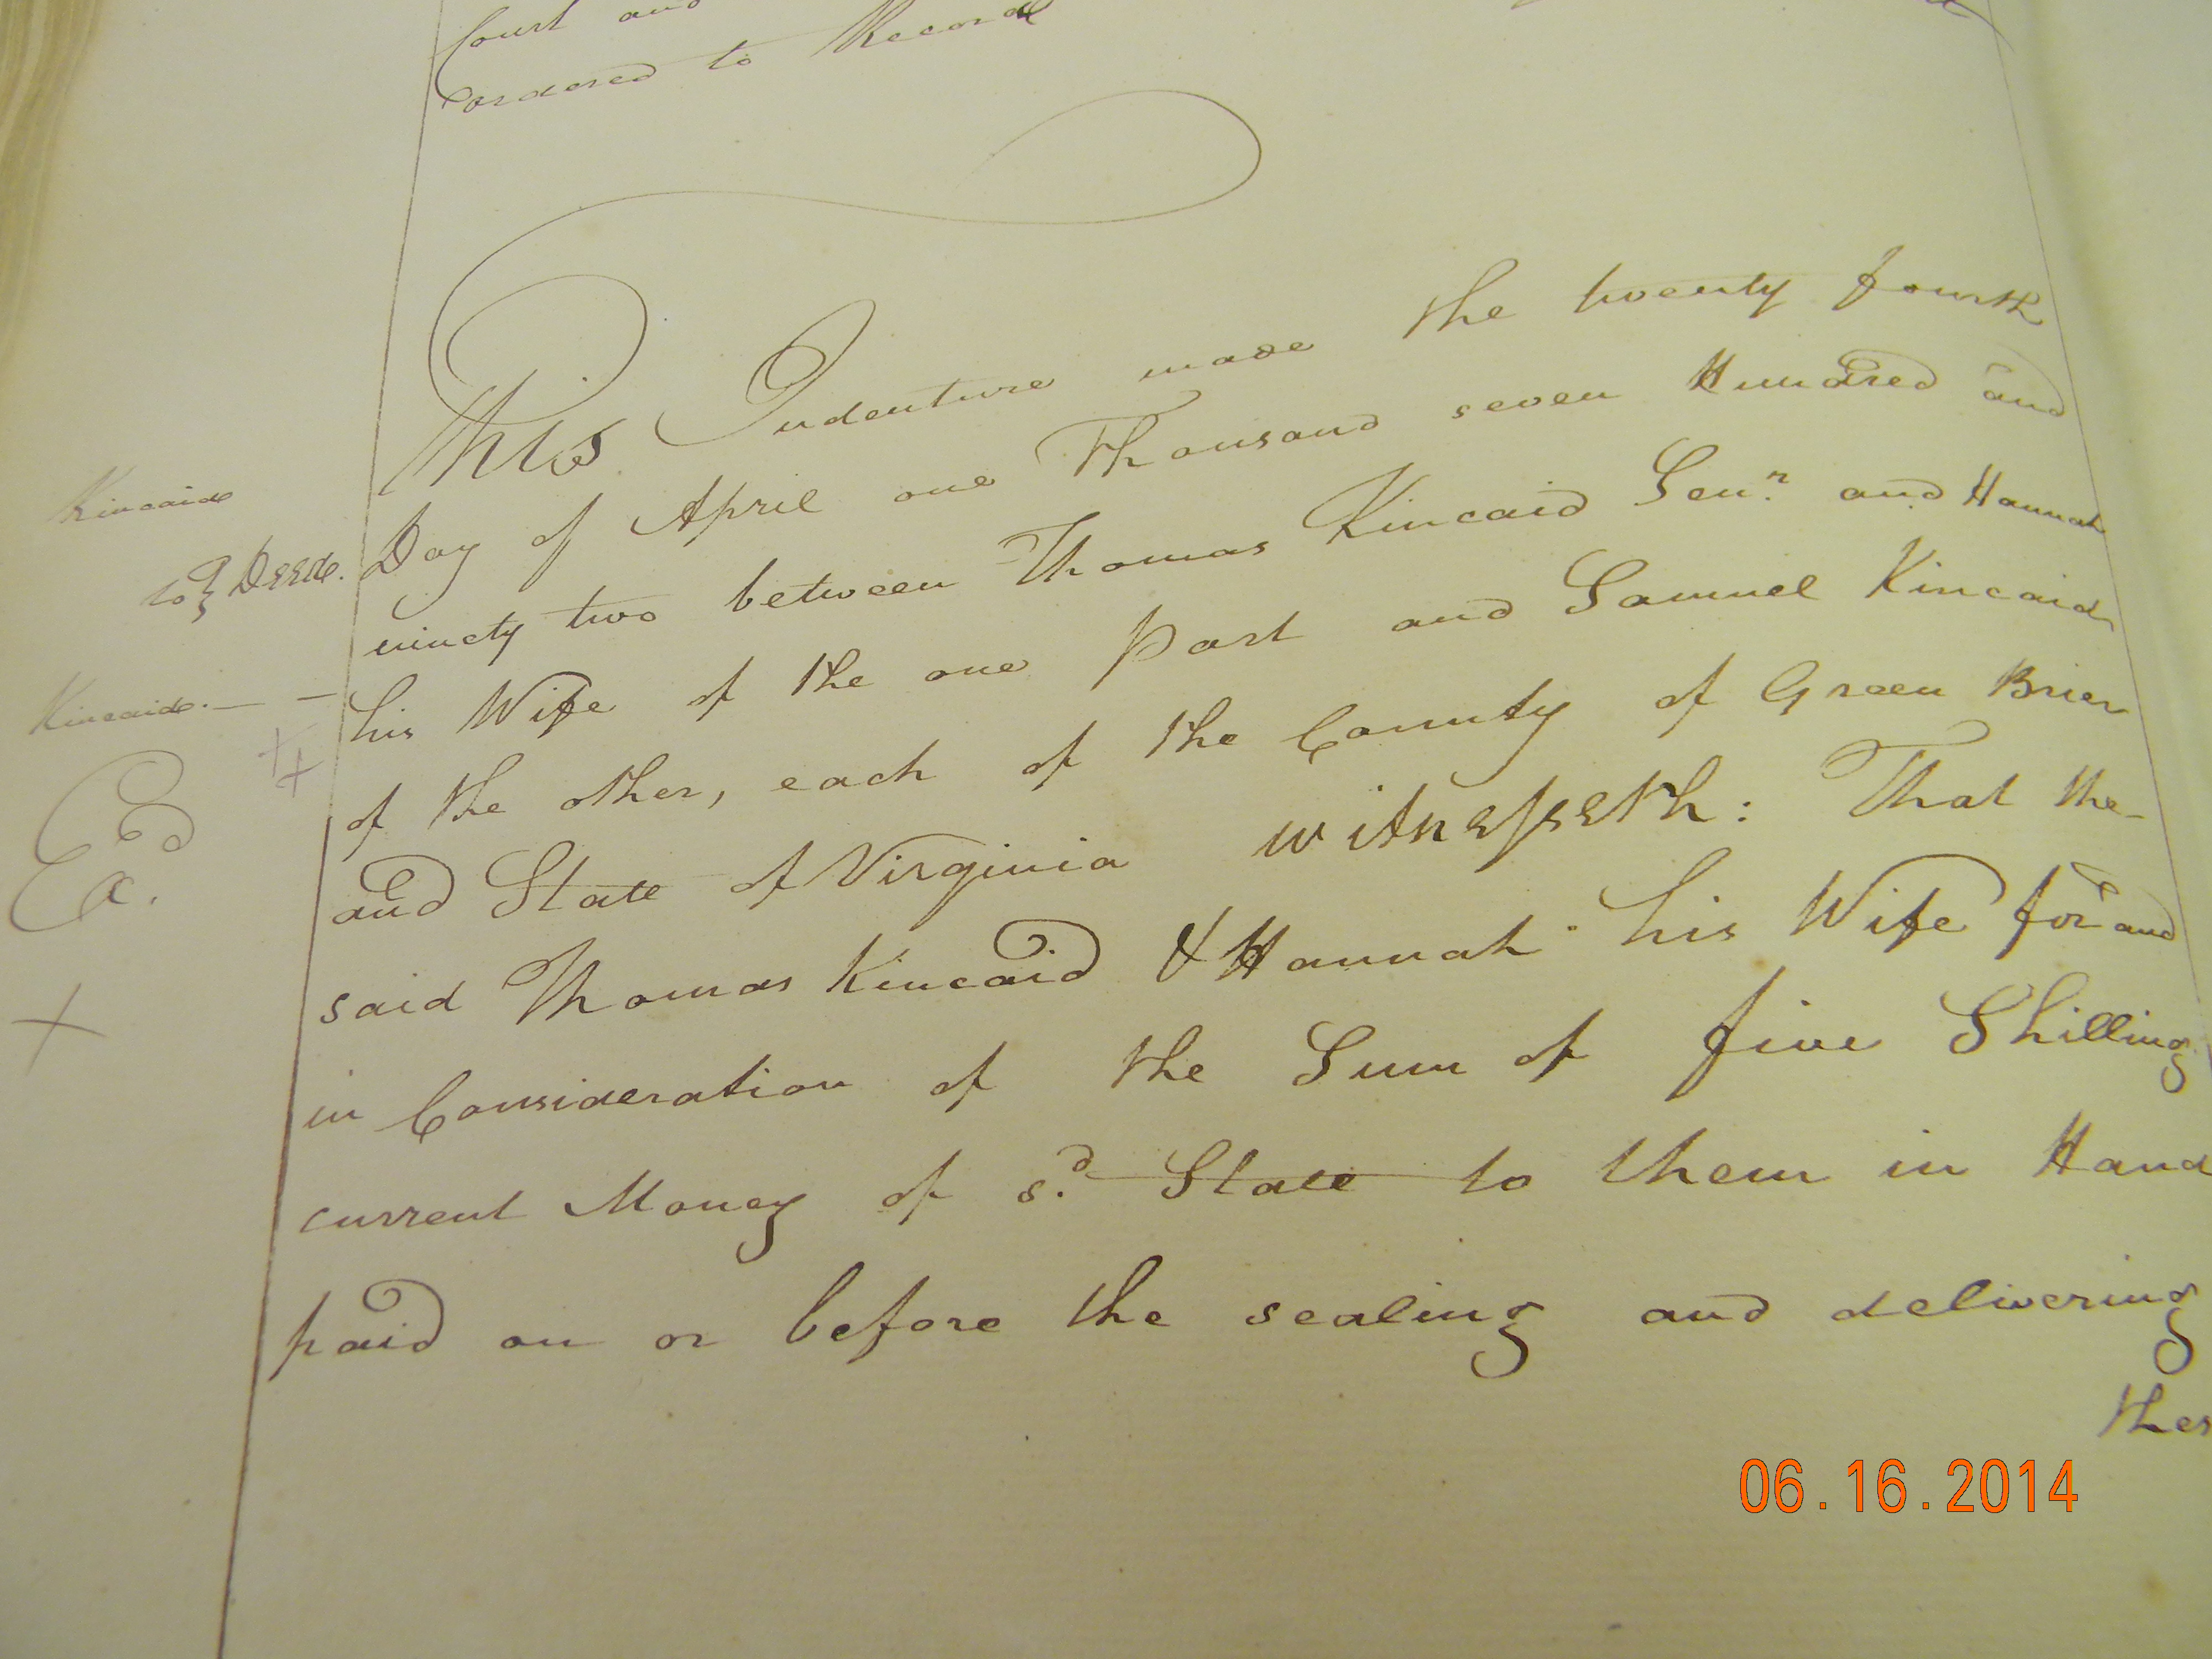 Court and
ordered to Record
This Indenture made the twenty fourth
Day of April one Thousand seven Hundred and
ninety two between Thomas Kincaid Senr. and Hannah
his Wife of the one Part and Samuel Kincaid
of the other, each of the County of Green Brier
and State of Virginia witnesseth: That the
said Thomas Kincaid & Hannah his Wife for and
in Consideration of the Sum of five Shilling
current Money of sd. State to them in Hand
paid on or before the sealing and delivering
ther
Kincaid
to } Deed.
Kincaid.
Ed
Ex.
06.16.2014